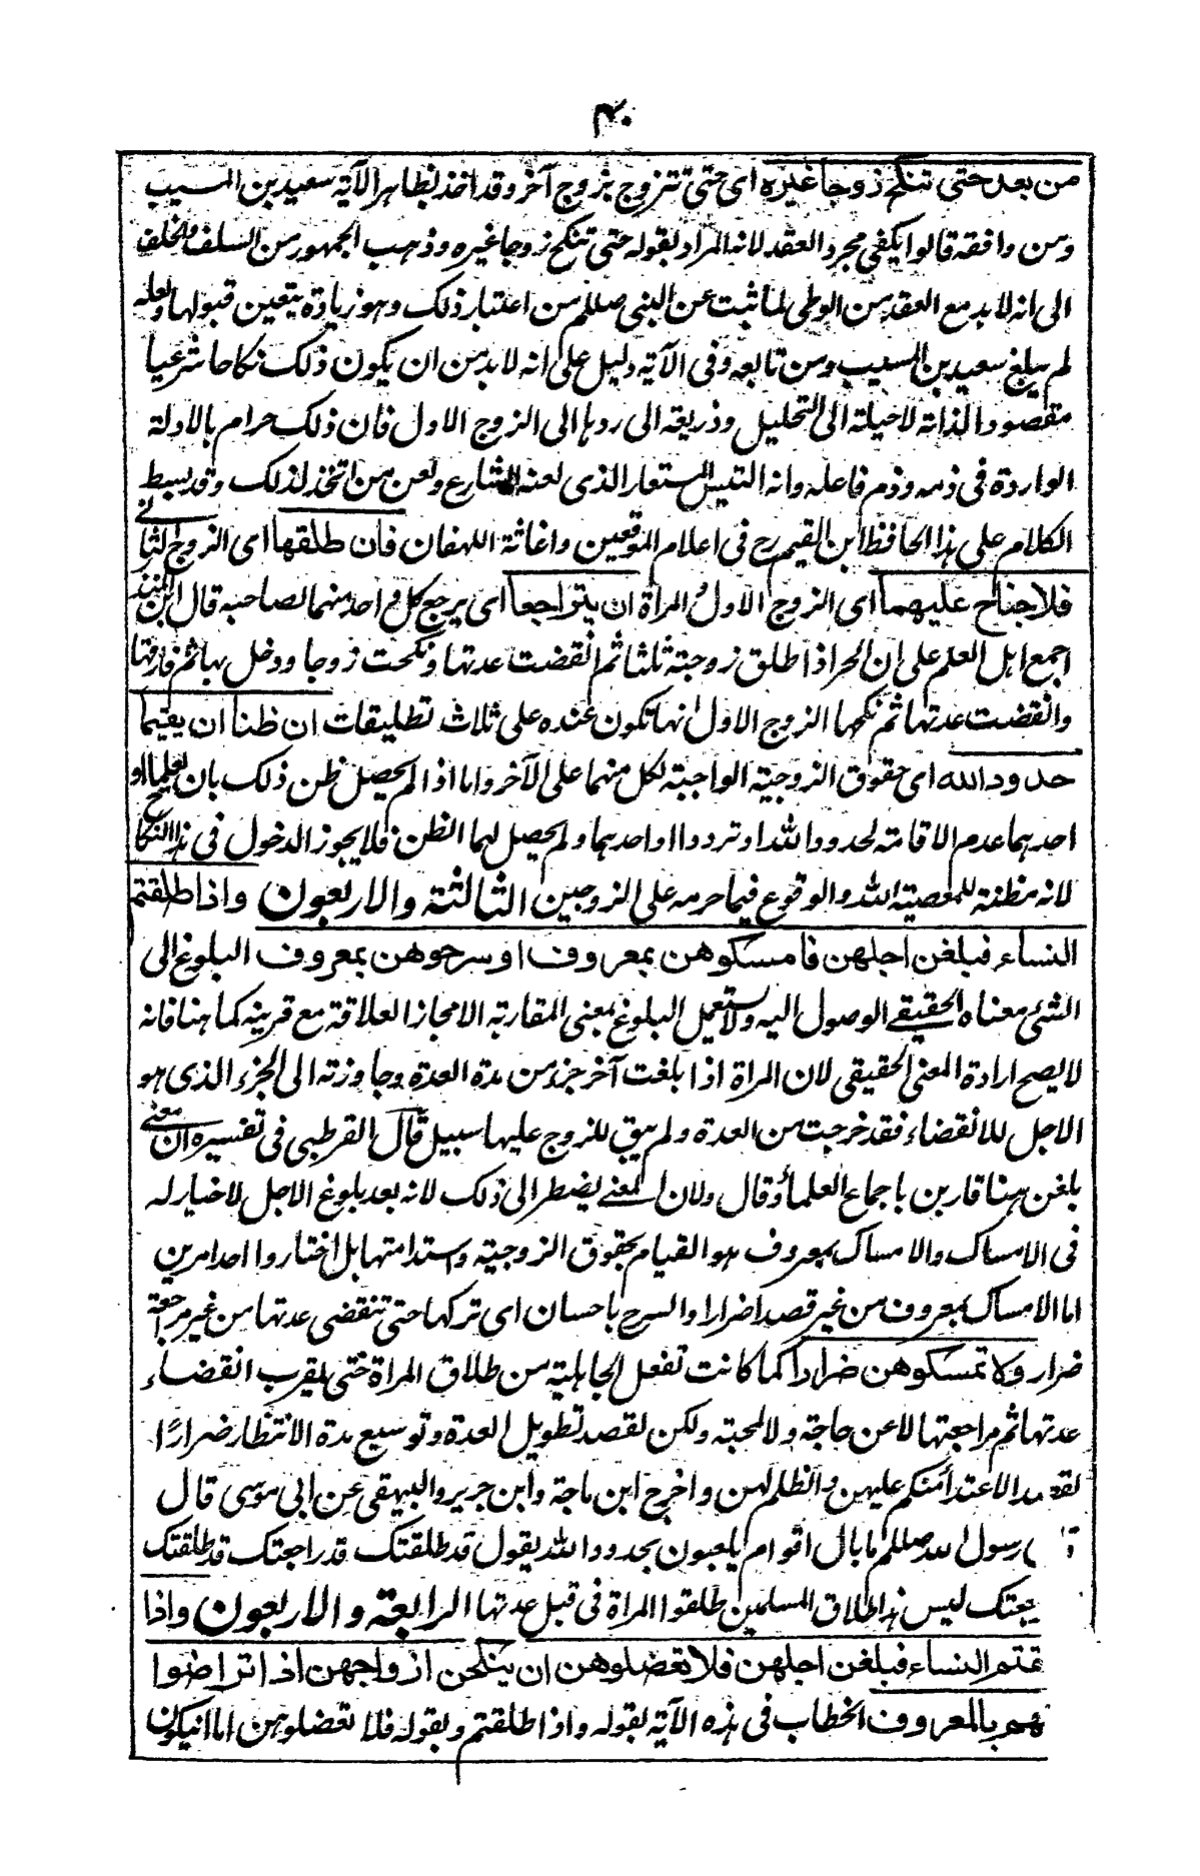 ٤٠
من بعد حتى تنكح زوجا غيره اى حتى تتزوج بزوج آخر وقد اخذ بظاهر الآية سعيد بن المسيب
ومن وافقه قالوا يكفى مجرد العقد لانه المراد بقوله حتى تنكح زوجا غيره وذهب الجمهور من السلف والخلف
الى انه لا بد مع العقد من الوطى لما ثبت عن النبى صللم من اعتبار ذلك وهو زيادة يتعين قبولها ولعله
لم يبلغ سعيد بن المسيب ومن تابعه وفى الآية دليل على انه لا بد من ان يكون ذلك نكاحا شرعيا
مقصودا لذاته لا حيلة الى التحليل وذريعة الى ردها الى الزوج الاول فان ذلك حرام بالادلة
الواردة فى ذمه وذم فاعله وانه التيس المستعار الذى لعنه الشارع ولعن من اتخذ لذلك وقد بسط
الكلام على هذا الحافظ ابن القيم رح فى اعلام الموقعين واغاثة اللهفان فان طلقها اى الزوج الثانى
فلا جناح عليهما اى الزوج الاول والمرأة ان يتراجعا اى يرجع كل واحد منهما لصاحبه قال ابن المنذر
اجمع اهل العلم على ان الحر اذا طلق زوجته ثلثا ثم انقضت عدتها ونكحت زوجا ودخل بها ثم فارقها
وانقضت عدتها ثم نكحها الزوج الاول انها تكون عنده على ثلاث تطليقات ان ظنا ان يقيما
حدود الله اى حقوق الزوجية الواجبة لكل منهما على الآخر واما اذا لم يحصل ظن ذلك بان يعلما او
احدهما عدم الاقامة لحدود الله او ترددا او احدهما ولم يحصل لهما الظن فلا يجوز الدخول فى هذا النكاح
لانه مظنة للمعصية لله والوقوع فيما حرمه على الزوجين الثالثة والاربعون واذا طلقتم
النساء فبلغن اجلهن فامسكوهن بمعروف او سرحوهن بمعروف البلوغ الى
الشئ معناه الحقيقے الوصول اليه ولا يستعمل البلوغ بمعنى المقاربة الا مجازا لعلاقة مع قرينة كما هنا فانه
لا يصح ارادة المعنى الحقيقى لان المراة اذا بلغت آخر جزء من مدة العدة وجاوزته الى الجزء الذى هو
الاجل للانقضاء فقد خرجت من العدة ولم يبق للزوج عليها سبيل قال القرطبى فى تفسيره ان معنى
بلغن هنا قاربن باجماع العلماء وقال ولان المعنے يضطر الى ذلك لانه بعد بلوغ الاجل لا خيار له
فى الامساك والامساك بمعروف هو القيام بحقوق الزوجية واستدامتها بل اختاروا احد امرين
اما الامساك بمعروف من غير قصد اضرار او السرح باحسان اى تركها حتى تنقضى عدتها من غير مراجعة
ضرار ولا تمسكوهن ضرارا كما كانت تفعل الجاهلية من طلاق المراة حتى يقرب انقضاء
عدتها ثم مراجعتها لا عن حاجة ولا لمحبة ولكن لقصد تطويل العدة وتوسيع مدة الانتظار ضرارًا
لقصد الاعتداء منكم عليهن والظلم لهن واخرج ابن ماجة وابن جرير والبيهقى عن ابى موسى قال
رسول الله صللم ما بال اقوام يلعبون بحدود الله يقول قد طلقتك قد راجعتك قد طلقتك
جعتك ليس هذا طلاق المسلمين طلقوا المراة فى قبل عدتها الرابعة والاربعون واذا
قتم النساء فبلغن اجلهن فلا تعضلوهن ان ينكحن ازواجهن اذا تراضوا
نهم بالمعروف الخطاب فى هذه الآية بقوله واذا طلقتم وبقوله فلا تعضلوهن اما ان يكون